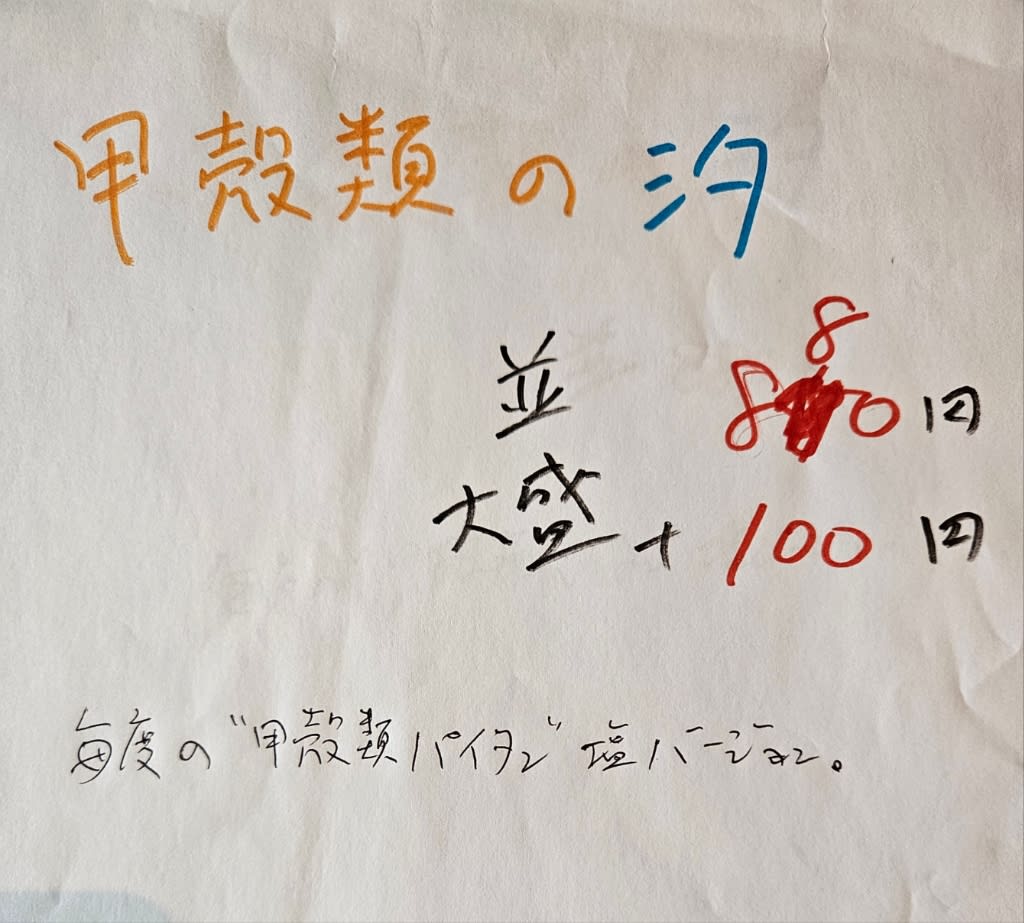 甲殻類の汐
並 880円
大盛+100円
毎度の"甲殻類パイタン"塩バージョン。